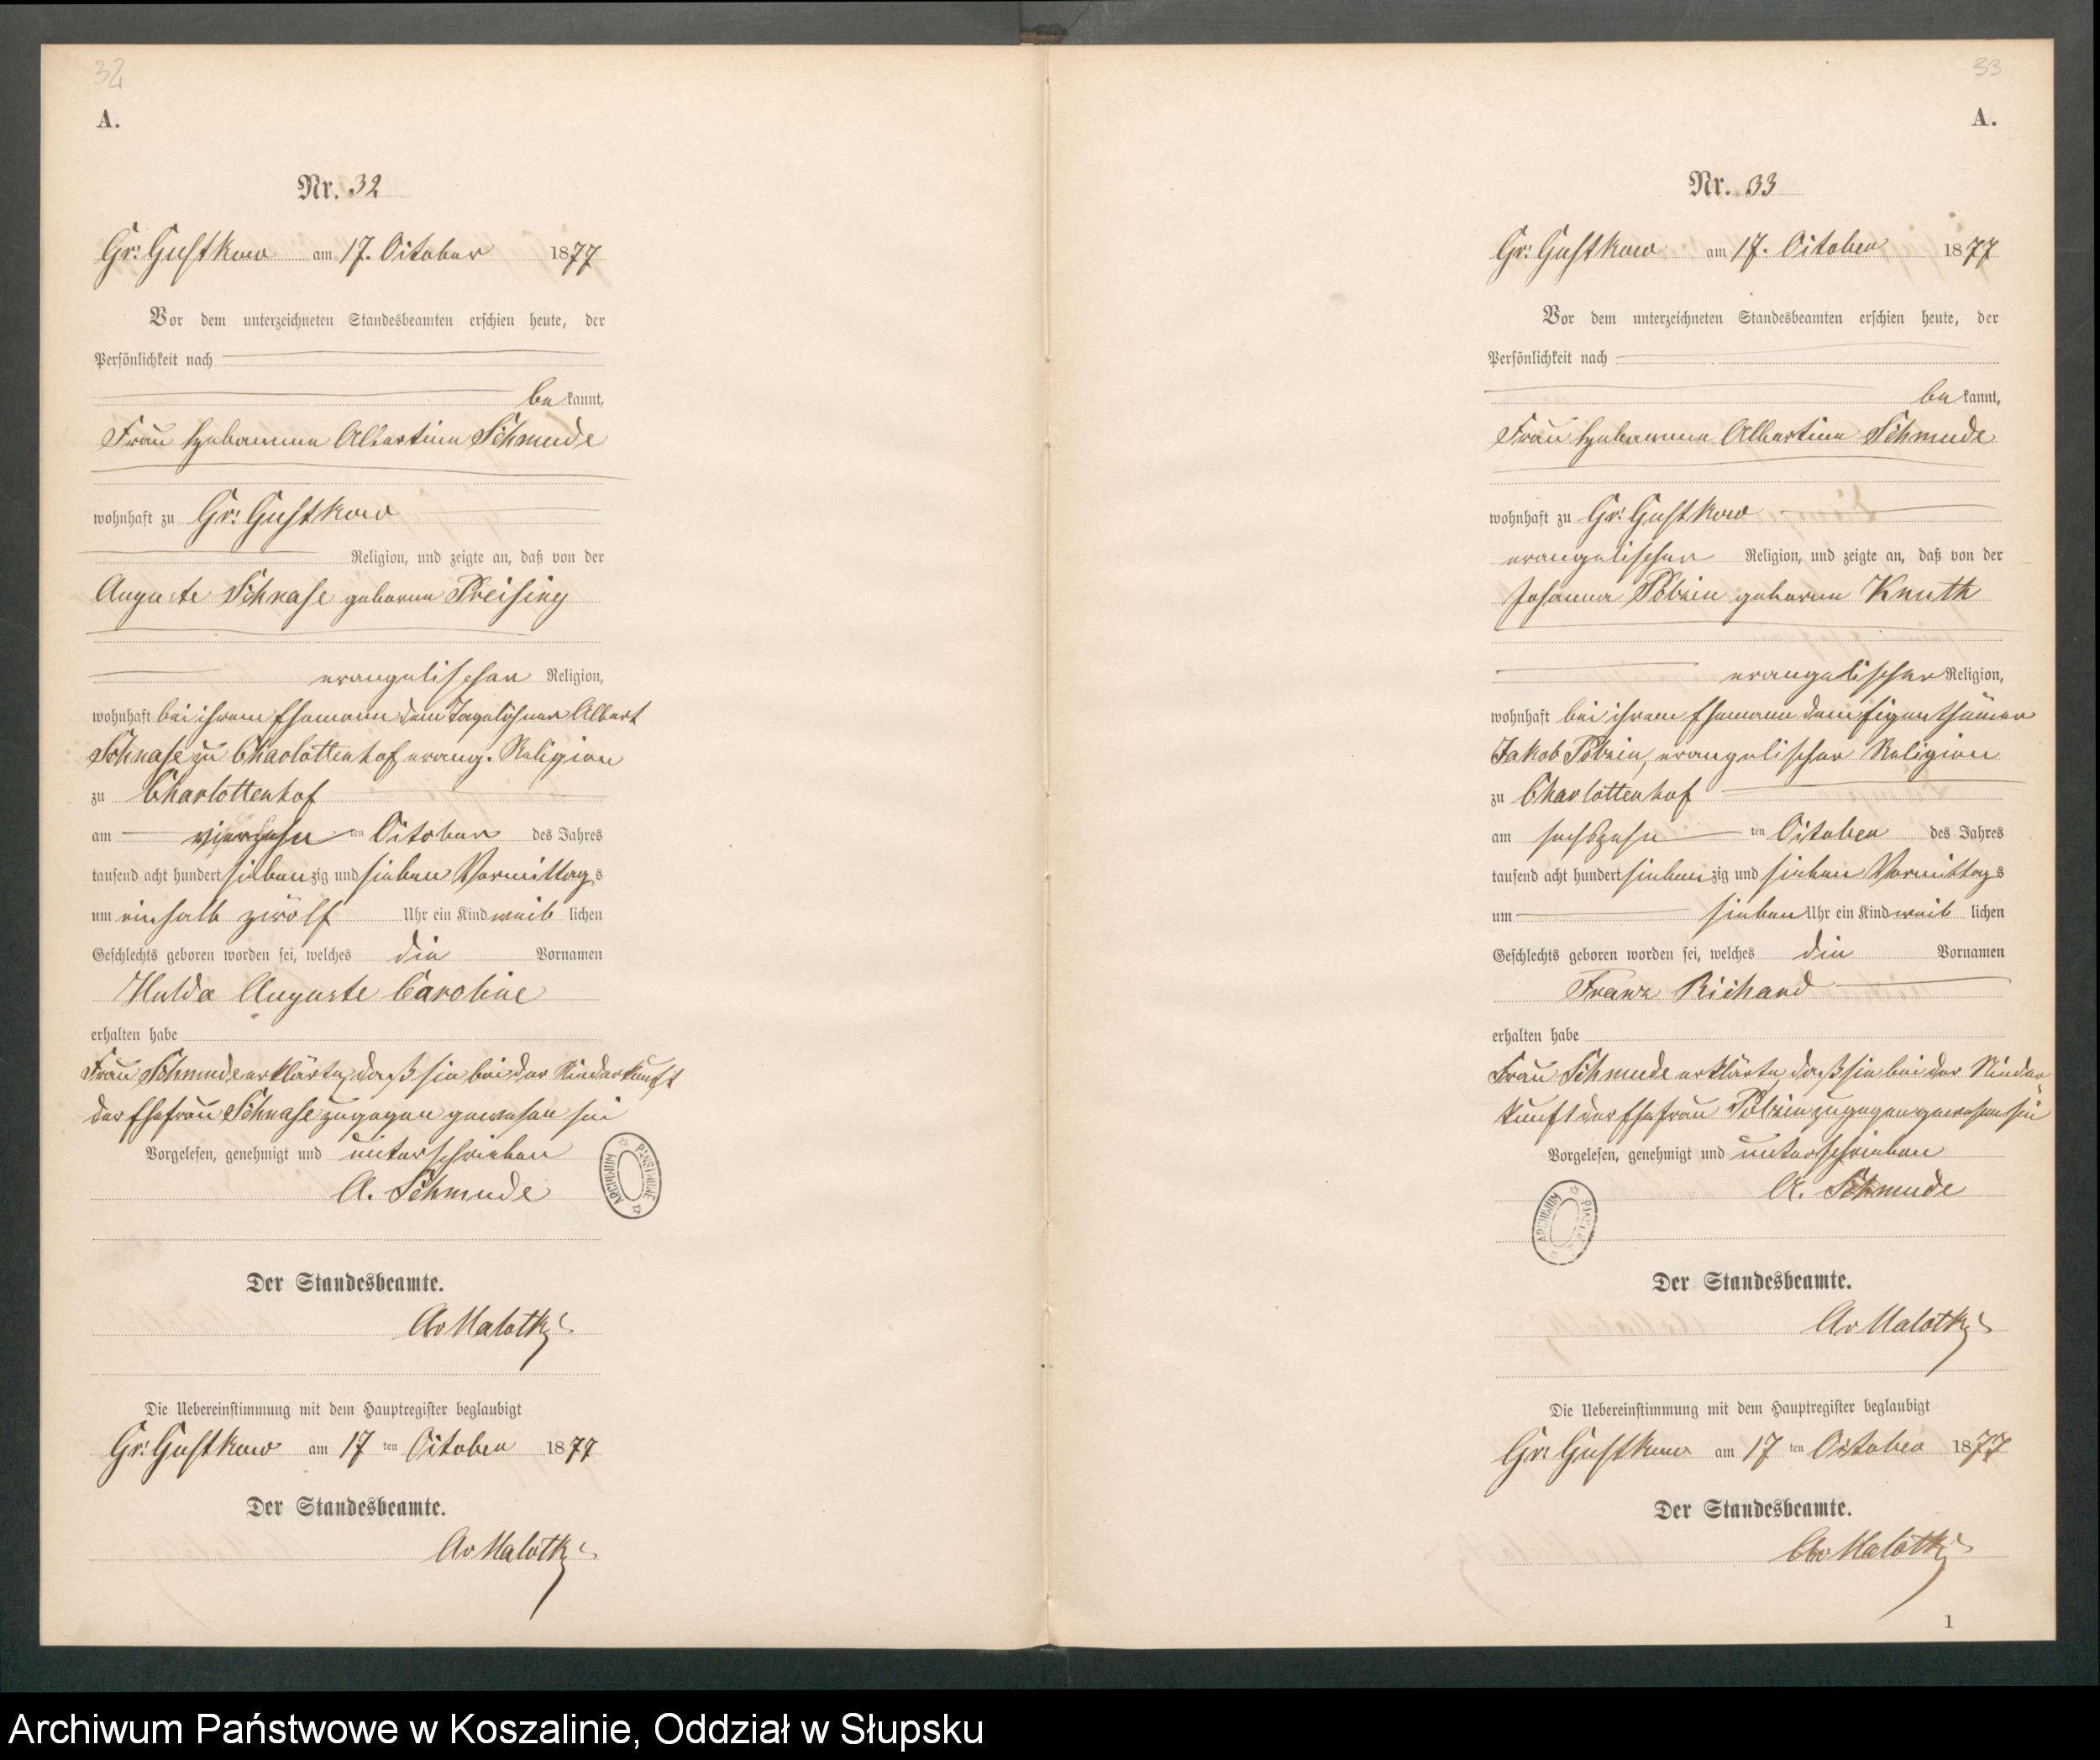 32
A.
Nr. 32
Gr. Gustkow am 17. October 1877
Vor dem unterzeichneten Standesbeamten erschien heute, der
Persönlichkeit nach
be kannt,
Frau Hebamme Albertine Schmude
wohnhaft zu Gr. Gustkow
Religion, und zeigte an, daß von der
Auguste Schnase geborene Preising
evangelischer Religion,
wohnhaft bei ihrem Ehemann dem Tagelöhner Albert
Schnase zu Charlottenhof evang. Religion
zu Charlottenhof
am vierzehn ten October des Jahres
tausend acht hundert sieben zig und sieben Vormittag s
um einhalb zwölf Uhr ein Kind weib lichen
Geschlechts geboren worden sei, welches die Vornamen
Hulda Auguste Caroline
erhalten habe
Frau Schmude erklärte, daß sie bei der Niederkunft
der Ehefrau Schnase zugegen gewesen sei
Vorgelesen, genehmigt und unterschrieben
A. Schmude
ARCHIWUM PAŃSTWOWE
Der Standesbeamte.
Av Malotki
Die Uebereinstimmung mit dem Hauptregister beglaubigt
Gr. Gustkow am 17 ten October 1877
Der Standesbeamte.
Av Malotki
33
A.
Nr. 33
Gr. Gustkow am 17. October 1877
Vor dem unterzeichneten Standesbeamten erschien heute, der
Persönlichkeit nach
be kannt,
Frau Hebamme Albertine Schmude
wohnhaft zu Gr. Gustkow
evangelischer Religion, und zeigte an, daß von der
Johanna geborene Knuth
evangelischer Religion,
wohnhaft bei ihrem Ehemann dem Eigenthümer
Jakob evangelischer Religion
zu Charlottenhof
am sechszehn ten October des Jahres
tausend acht hundert sieben zig und sieben Vormittag s
um sieben Uhr ein Kind weib lichen
Geschlechts geboren worden sei, welches die Vornamen
Franz Richard
erhalten habe
Frau Schmude erklärte, daß sie bei der Nieder
kunft der Ehefrau zugegen gewesen sei
Vorgelesen, genehmigt und unterschrieben
A. Schmude
ARCHIWUM
Der Standesbeamte.
Av Malotki
Die Uebereinstimmung mit dem Hauptregister beglaubigt
Gr. Gustkow am 17 ten October 1877
Der Standesbeamte.
Av Malotki
1
Archiwum Państwowe w Koszalinie, Oddział w Słupsku